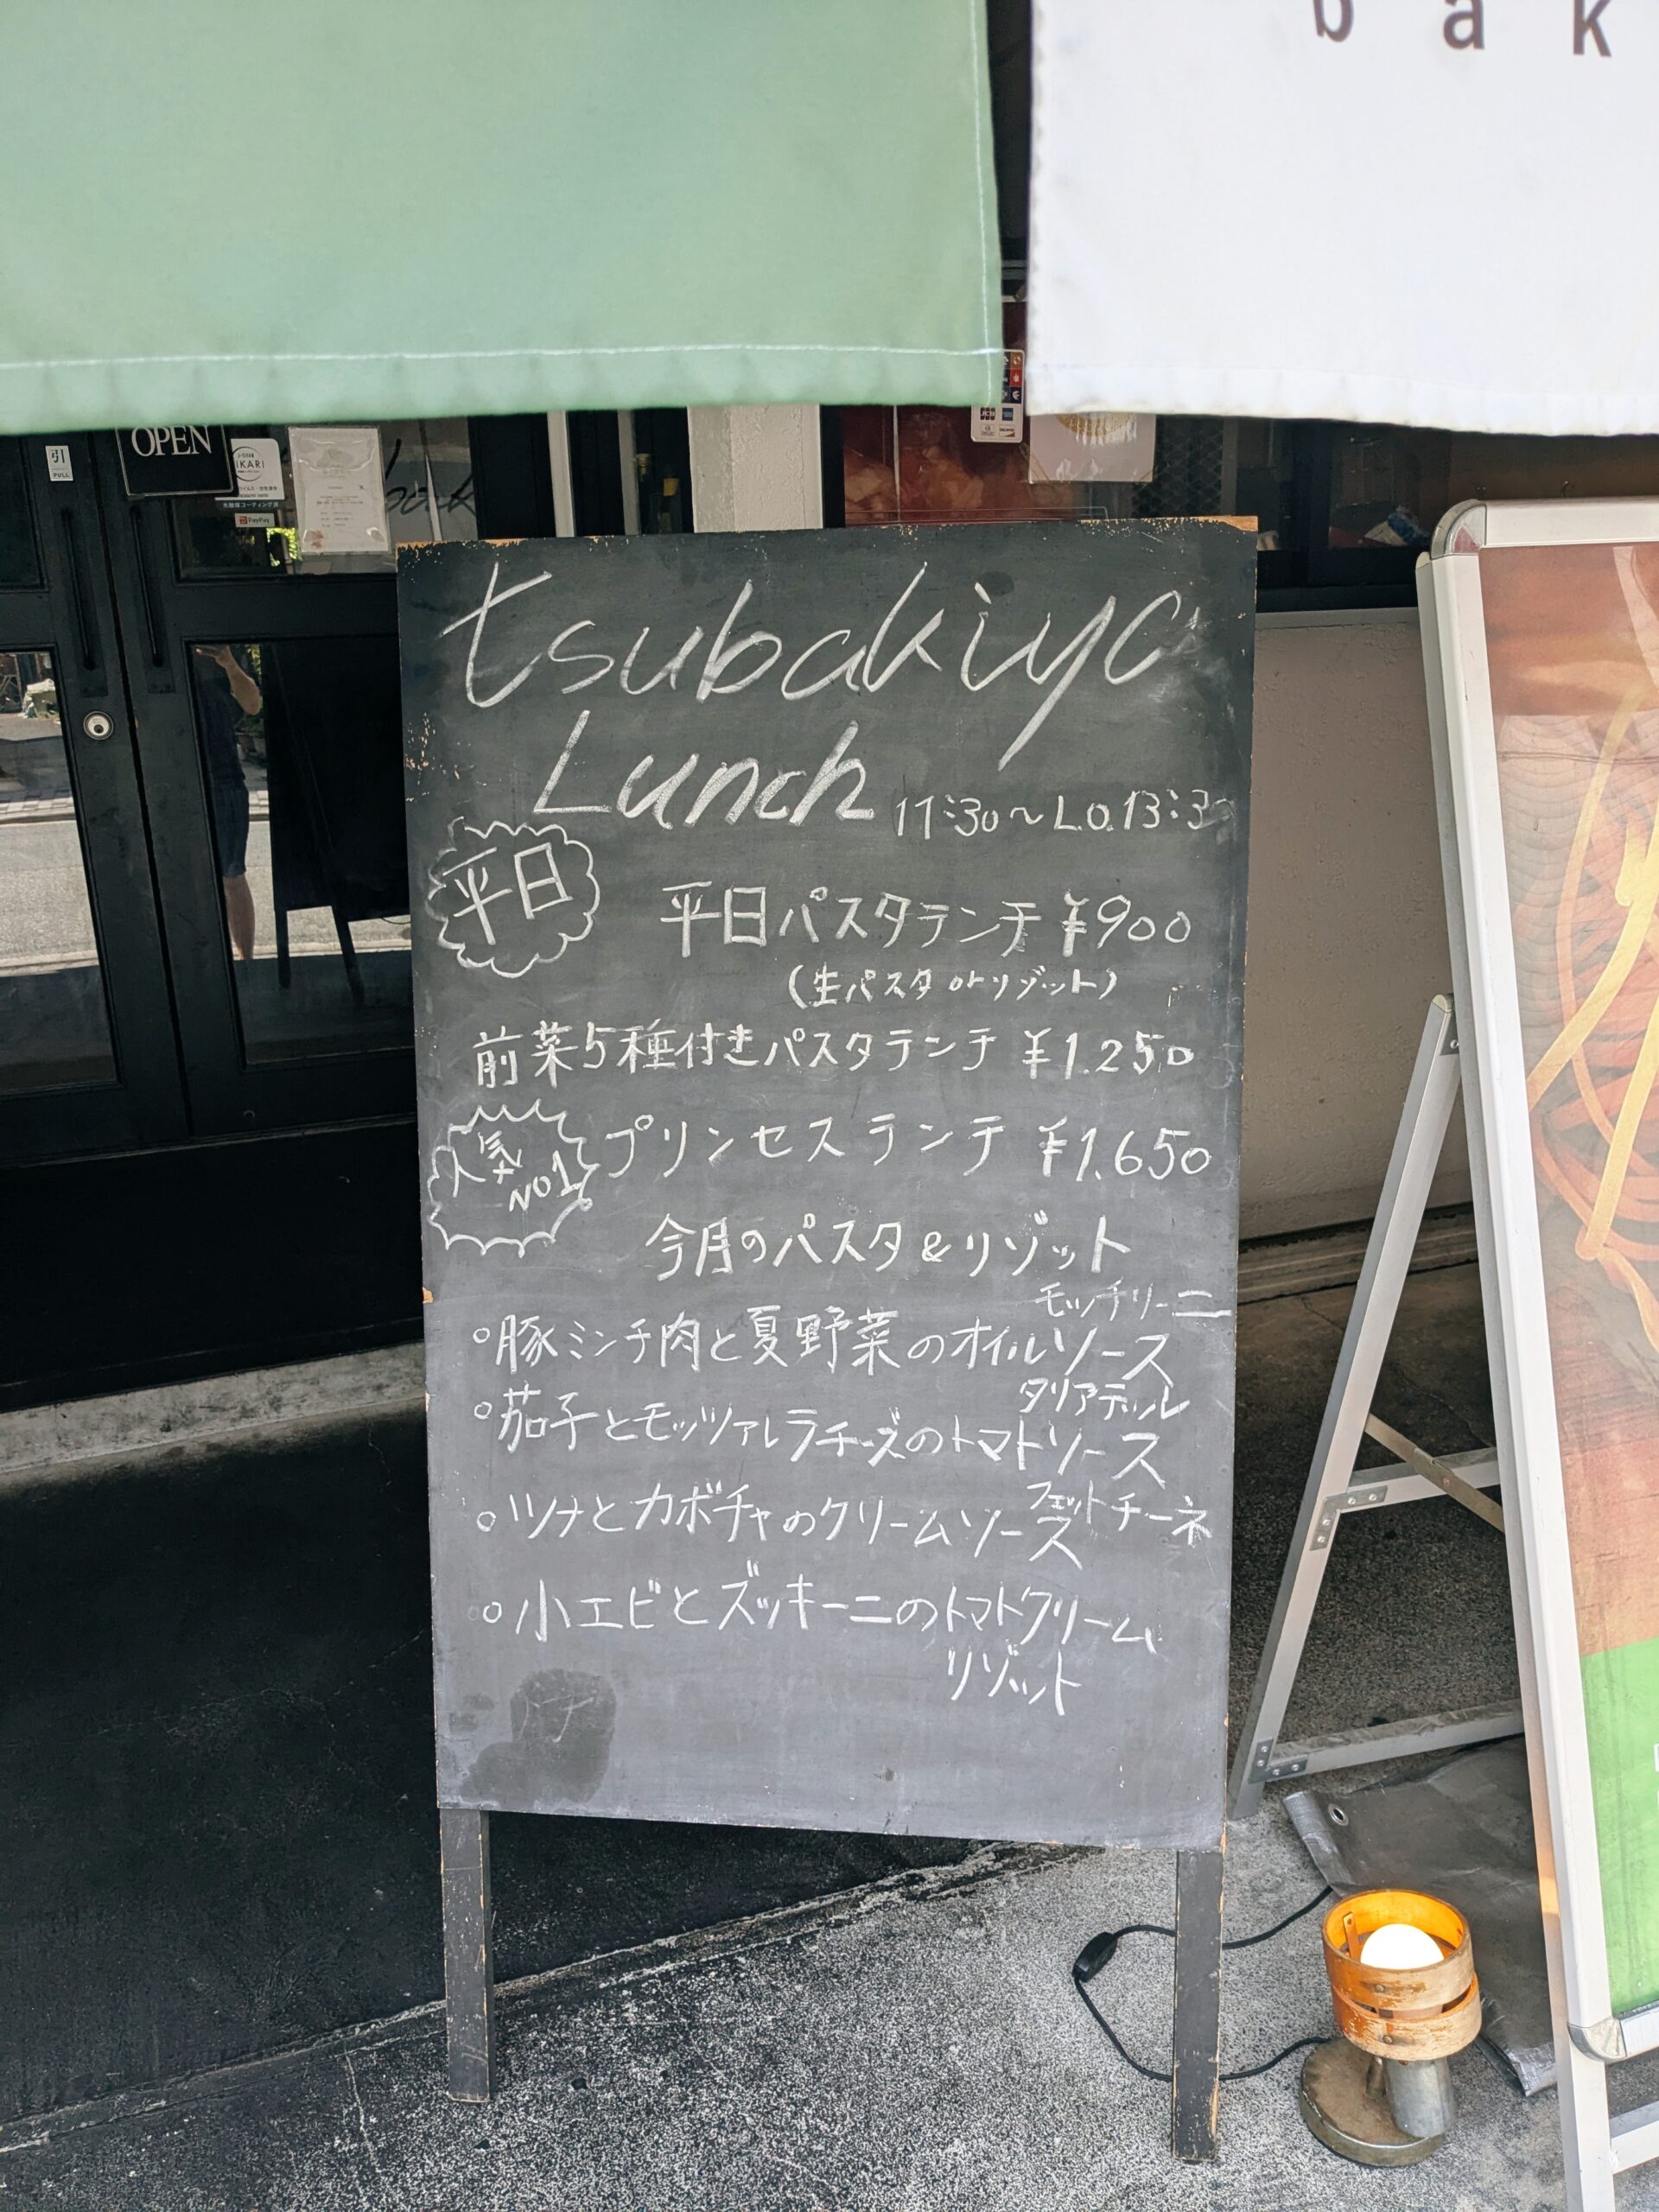 b a k
OPEN
引
PULL
IKARI
PayPay
bak
JCB
tsubakiya
Lunch 11:30～L.O.13:3
平日
平日パスタランチ ¥900
(生パスタorリゾット)
前菜5種付きパスタランチ ¥1.250
人気
NO1
プリンセスランチ ¥1.650
今月のパスタ&リゾット
モッチリーニ
○豚ミンチ肉と夏野菜のオイルソース
タリアテッレ
○茄子とモッツァレラチーズのトマトソース
フェットチーネ
○ツナとカボチャのクリームソース
○小エビとズッキーニのトマトクリーム
リゾット